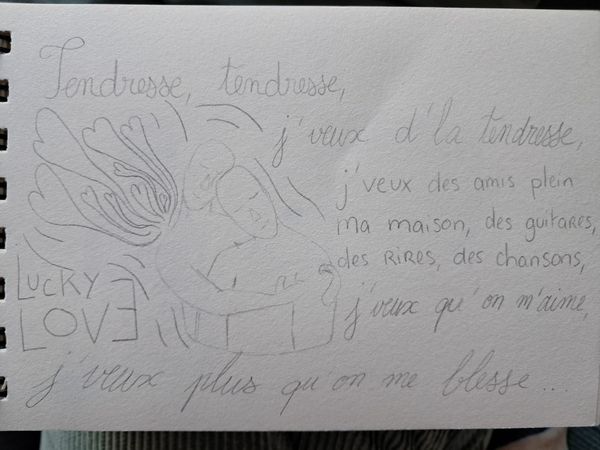 Tendresse, tendresse,
j'veux d'la tendresse,
j'veux des amis plein
ma maison, des guitares,
des RIRES, des chansons,
LUCKY
LOVE
j'veux qu'on m'aime,
j'veux plus qu'on me blesse...